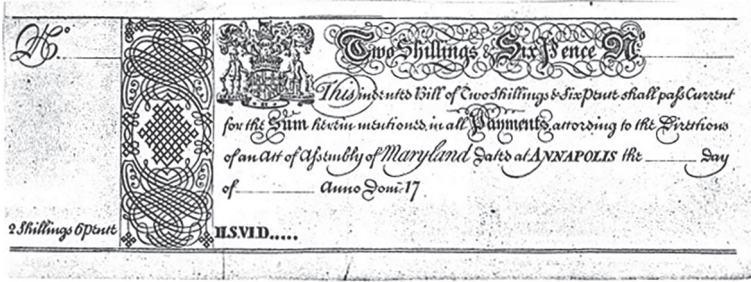 No.
Two Shillings & Six Pence No.
This indented Bill of Two Shillings & Six Pence shall pass Current
for the Sum herein mentioned, in all Payments, according to the Directions
of an Act of Assembly of Maryland Dated at ANNAPOLIS the ______ day
of ______ Anno Dom: 17
2 Shillings 6 Pence
II.S.VI D.....